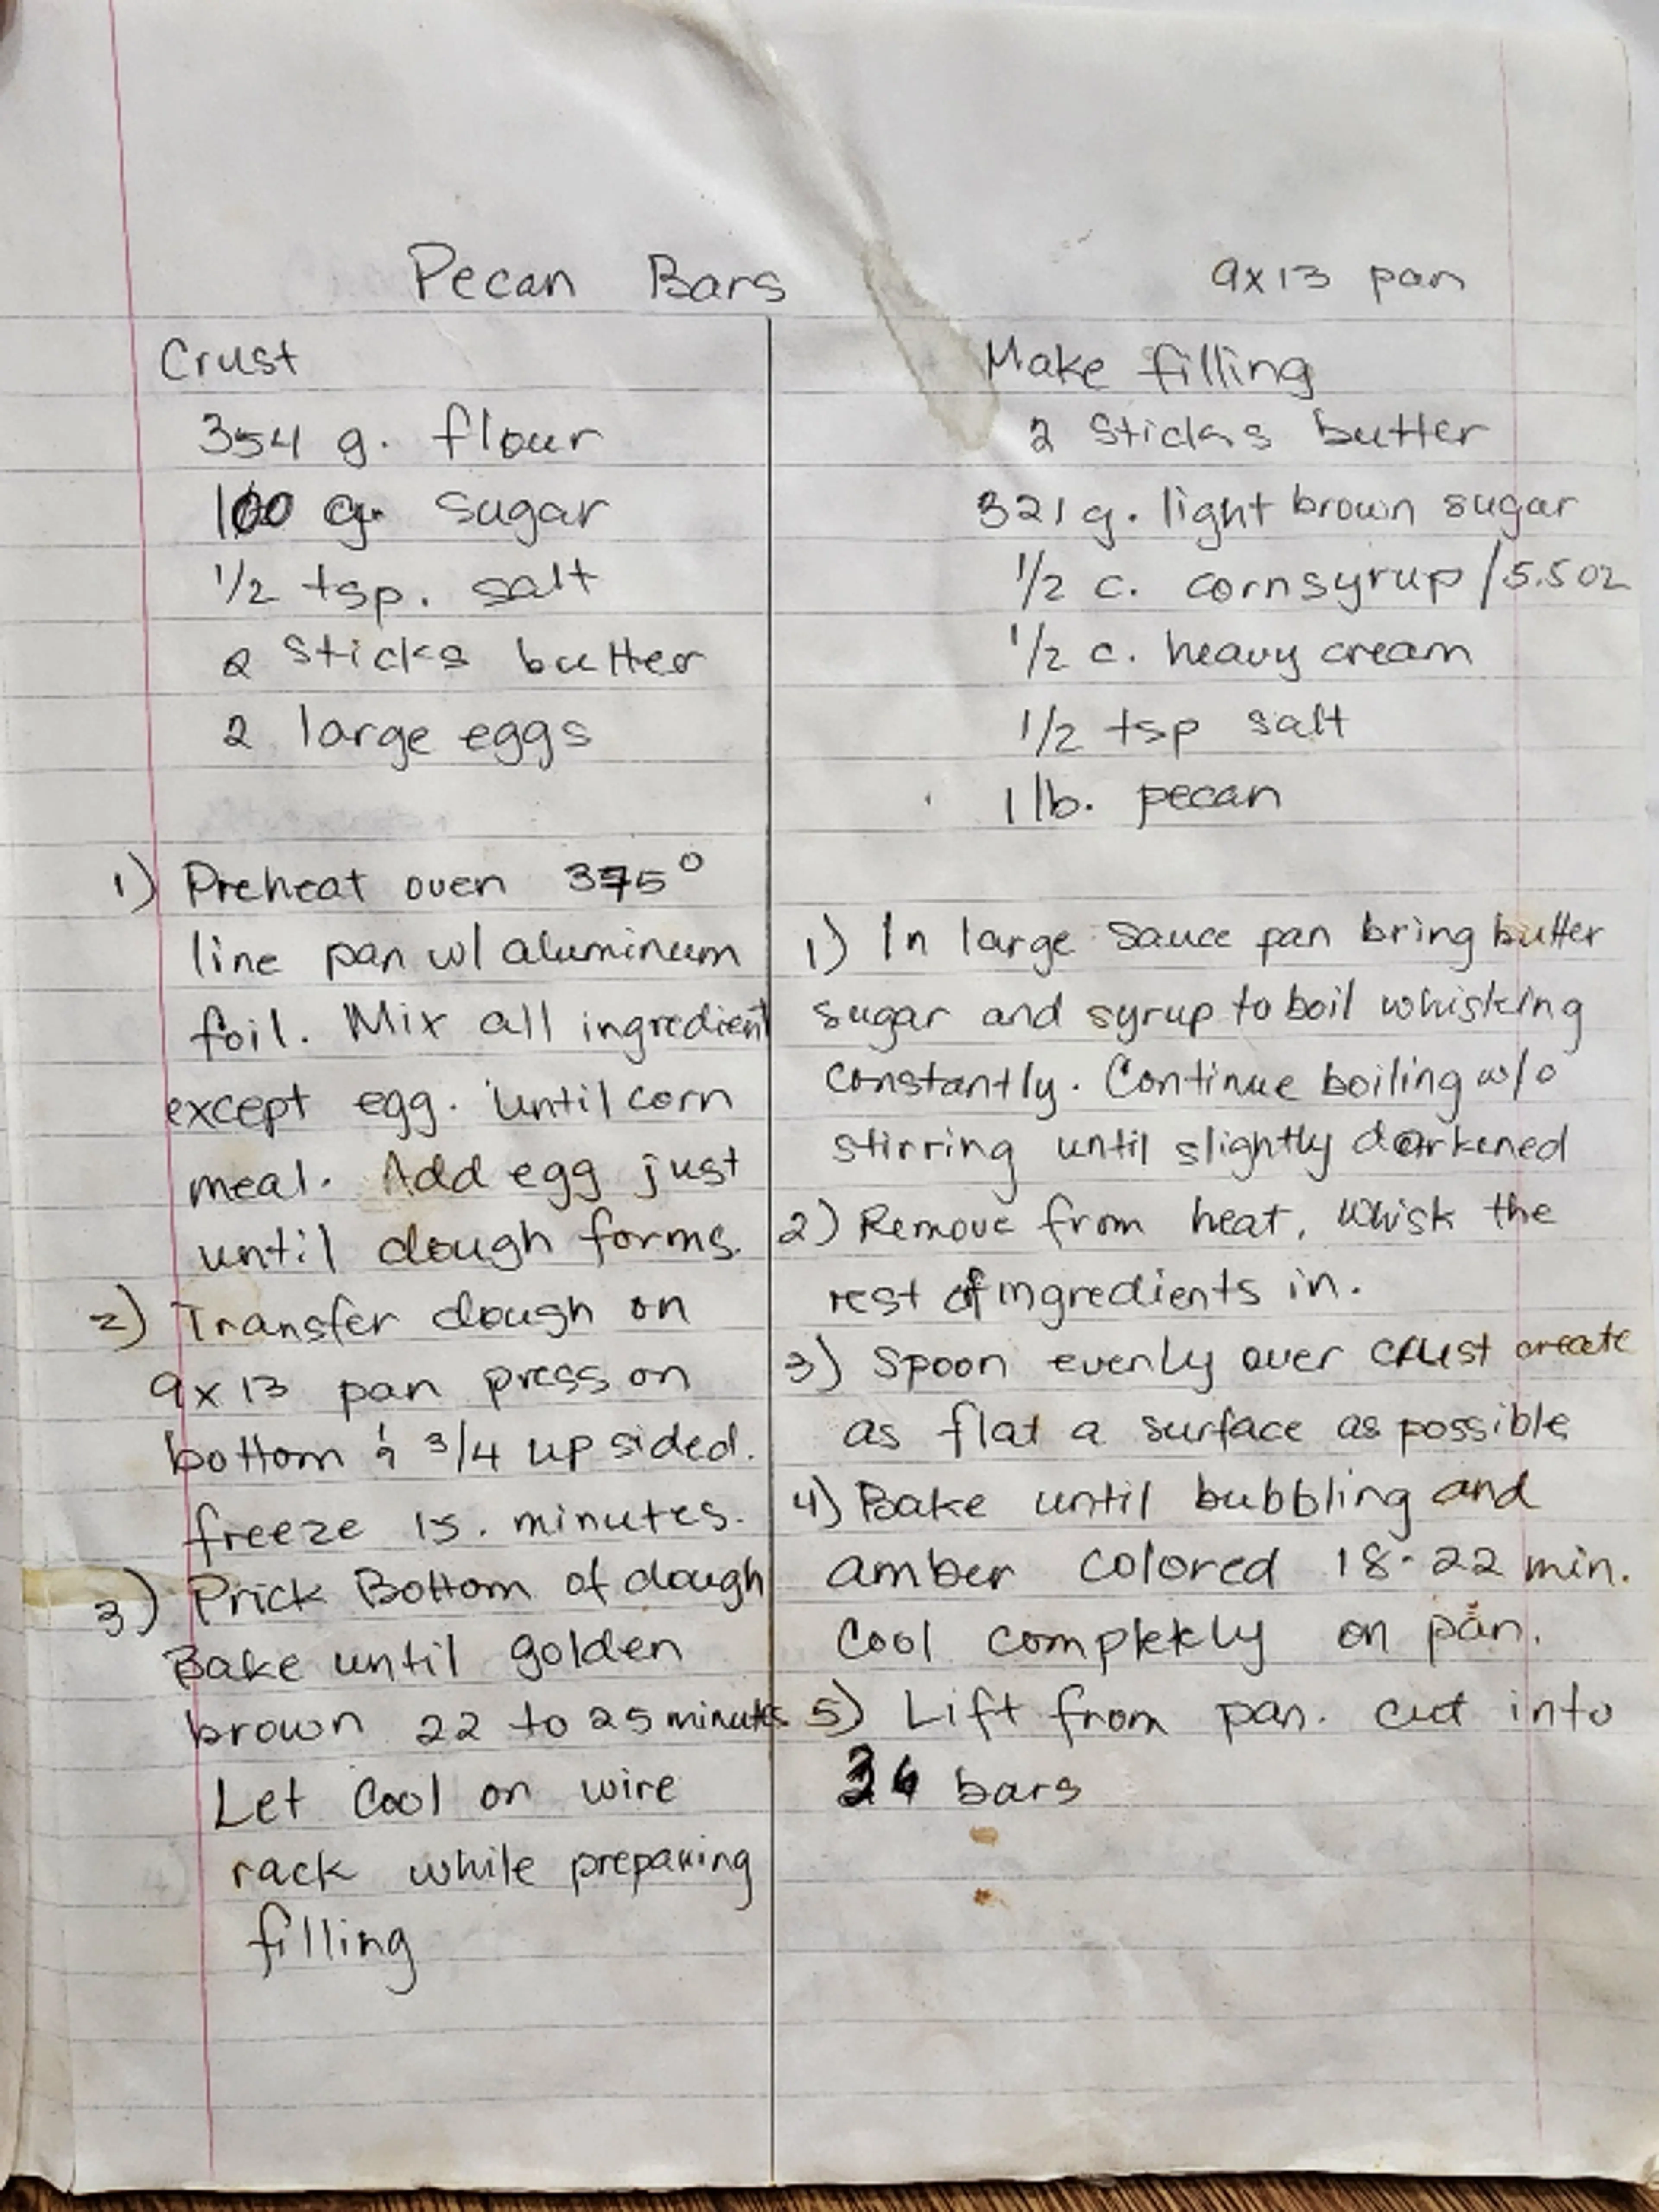 Pecan Bars
9x13 pan
Crust
354 g. flour
100 g. sugar
1/2 tsp. salt
2 sticks butter
2 large eggs
1) Preheat oven 375°
line pan w/ aluminum
foil. Mix all ingredient
except egg. until corn
meal. Add egg just
until dough forms.
2) Transfer dough on
9x13 pan press on
bottom & 3/4 up sided.
freeze 15. minutes.
3) Prick Bottom of dough
Bake until golden
brown 22 to 25 minutes
Let Cool on wire
rack while preparing
filling
Make filling
2 sticks butter
321 g. light brown sugar
1/2 c. corn syrup /5.5 oz
1/2 c. heavy cream
1/2 tsp salt
1 lb. pecan
1) In large sauce pan bring butter
sugar and syrup to boil whisking
constantly. Continue boiling w/o
stirring until slightly darkened
2) Remove from heat, whisk the
rest of ingredients in.
3) Spoon evenly over crust create
as flat a surface as possible
4) Bake until bubbling and
amber colored 18-22 min.
Cool completely on pan.
5) Lift from pan. cut into
bars